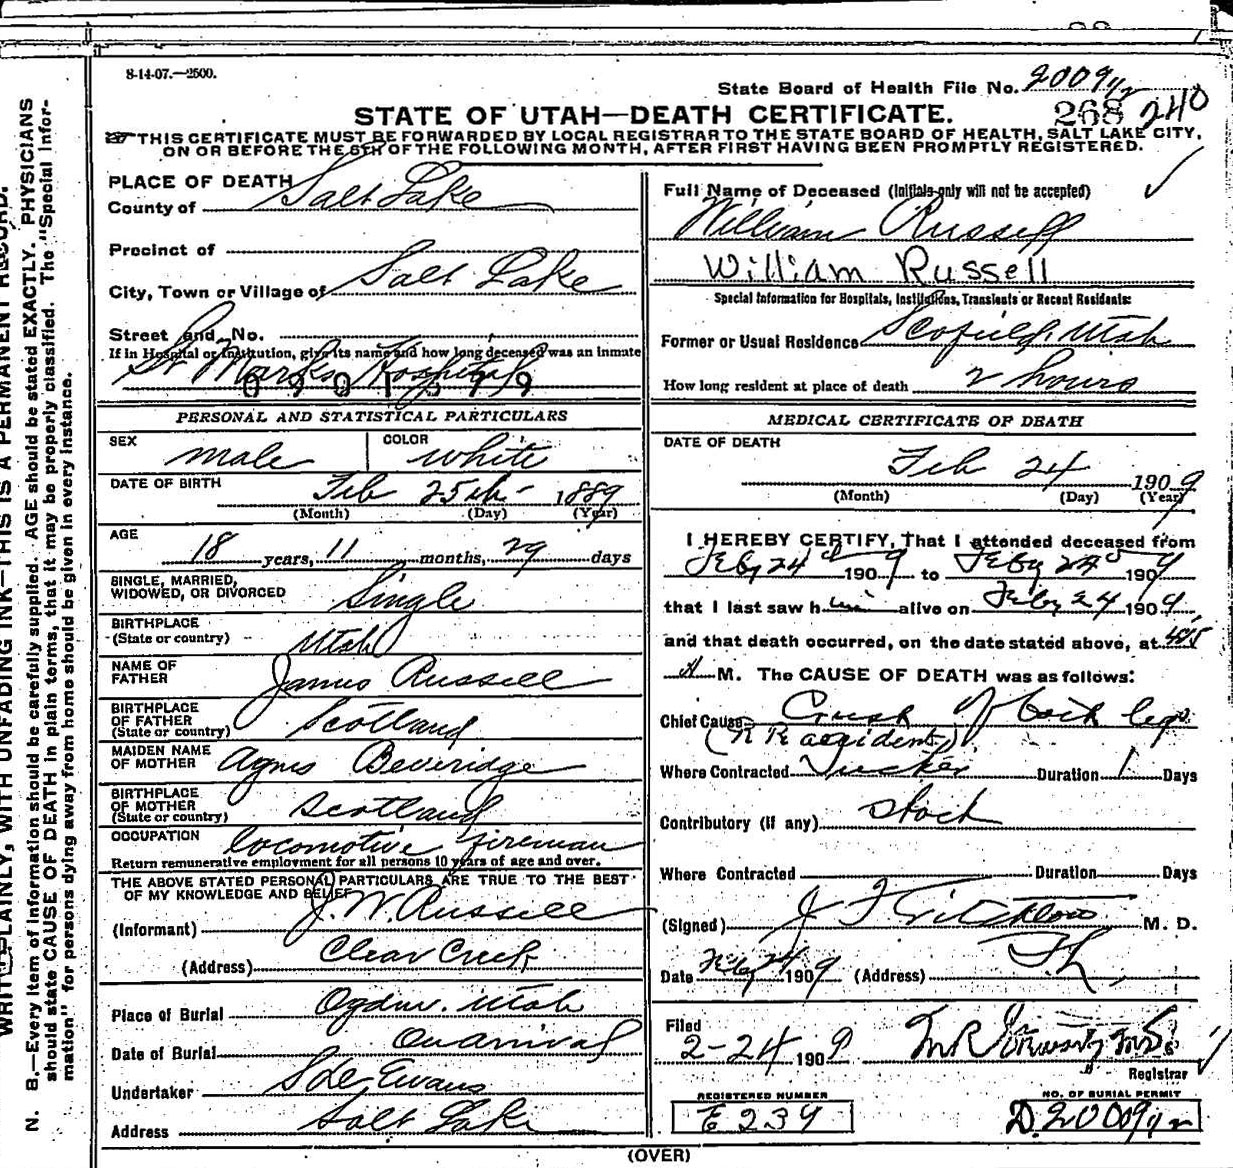 8-14-07.—2500.
State Board of Health File No. 2009 1/2
268 240
STATE OF UTAH—DEATH CERTIFICATE.
THIS CERTIFICATE MUST BE FORWARDED BY LOCAL REGISTRAR TO THE STATE BOARD OF HEALTH, SALT LAKE CITY,
ON OR BEFORE THE 5TH OF THE FOLLOWING MONTH, AFTER FIRST HAVING BEEN PROMPTLY REGISTERED.
PLACE OF DEATH
County of Salt Lake
Precinct of
City, Town or Village of Salt Lake
Street and No.
If in Hospital or Institution, give its name and how long deceased was an inmate
St Marks Hospital
0901379
PERSONAL AND STATISTICAL PARTICULARS
SEX male COLOR white
DATE OF BIRTH Feb 25th 1889
(Month) (Day) (Year)
AGE 18 years, 11 months, 29 days
SINGLE, MARRIED,
WIDOWED, OR DIVORCED Single
BIRTHPLACE
(State or country) Utah
NAME OF
FATHER James Russell
BIRTHPLACE
OF FATHER
(State or country) Scotland
MAIDEN NAME
OF MOTHER Agnes Beveridge
BIRTHPLACE
OF MOTHER
(State or country) Scotland
OCCUPATION locomotive fireman
Return remunerative employment for all persons 10 years of age and over.
THE ABOVE STATED PERSONAL PARTICULARS ARE TRUE TO THE BEST
OF MY KNOWLEDGE AND BELIEF
(Informant) J. W. Russell
(Address) Clear Creek
Place of Burial Ogden. Utah
Date of Burial On Arrival
Undertaker Evans
Address Salt Lake
Full Name of Deceased (Initials only will not be accepted)
William Russell
William Russell
Special Information for Hospitals, Institutions, Transients or Recent Residents:
Former or Usual Residence Scofield, Utah
How long resident at place of death 2 hours
MEDICAL CERTIFICATE OF DEATH
DATE OF DEATH
Feb 24 1909
(Month) (Day) (Year)
I HEREBY CERTIFY, That I attended deceased from
Feby 24th 1909 to Feby 24th 1909
that I last saw him alive on Feby 24 1909,
and that death occurred, on the date stated above, at
A M. The CAUSE OF DEATH was as follows:
Chief Cause Crush of both legs
(R R accident)
Where Contracted Tucker Duration 1 Days
Contributory (if any) Shock
Where Contracted Duration Days
(Signed) M. D.
Date Feby 24 1909 (Address)
Filed
2-24 1909
Registrar
REGISTERED NUMBER
E 239
NO. OF BURIAL PERMIT
D. 2009 1/2
(OVER)
WRITE PLAINLY, WITH UNFADING INK—THIS IS A PERMANENT RECORD.
N. B.—Every item of information should be carefully supplied. AGE should be stated EXACTLY. PHYSICIANS
should state CAUSE OF DEATH in plain terms, that it may be properly classified. The "Special Infor-
mation" for persons dying away from home should be given in every instance.